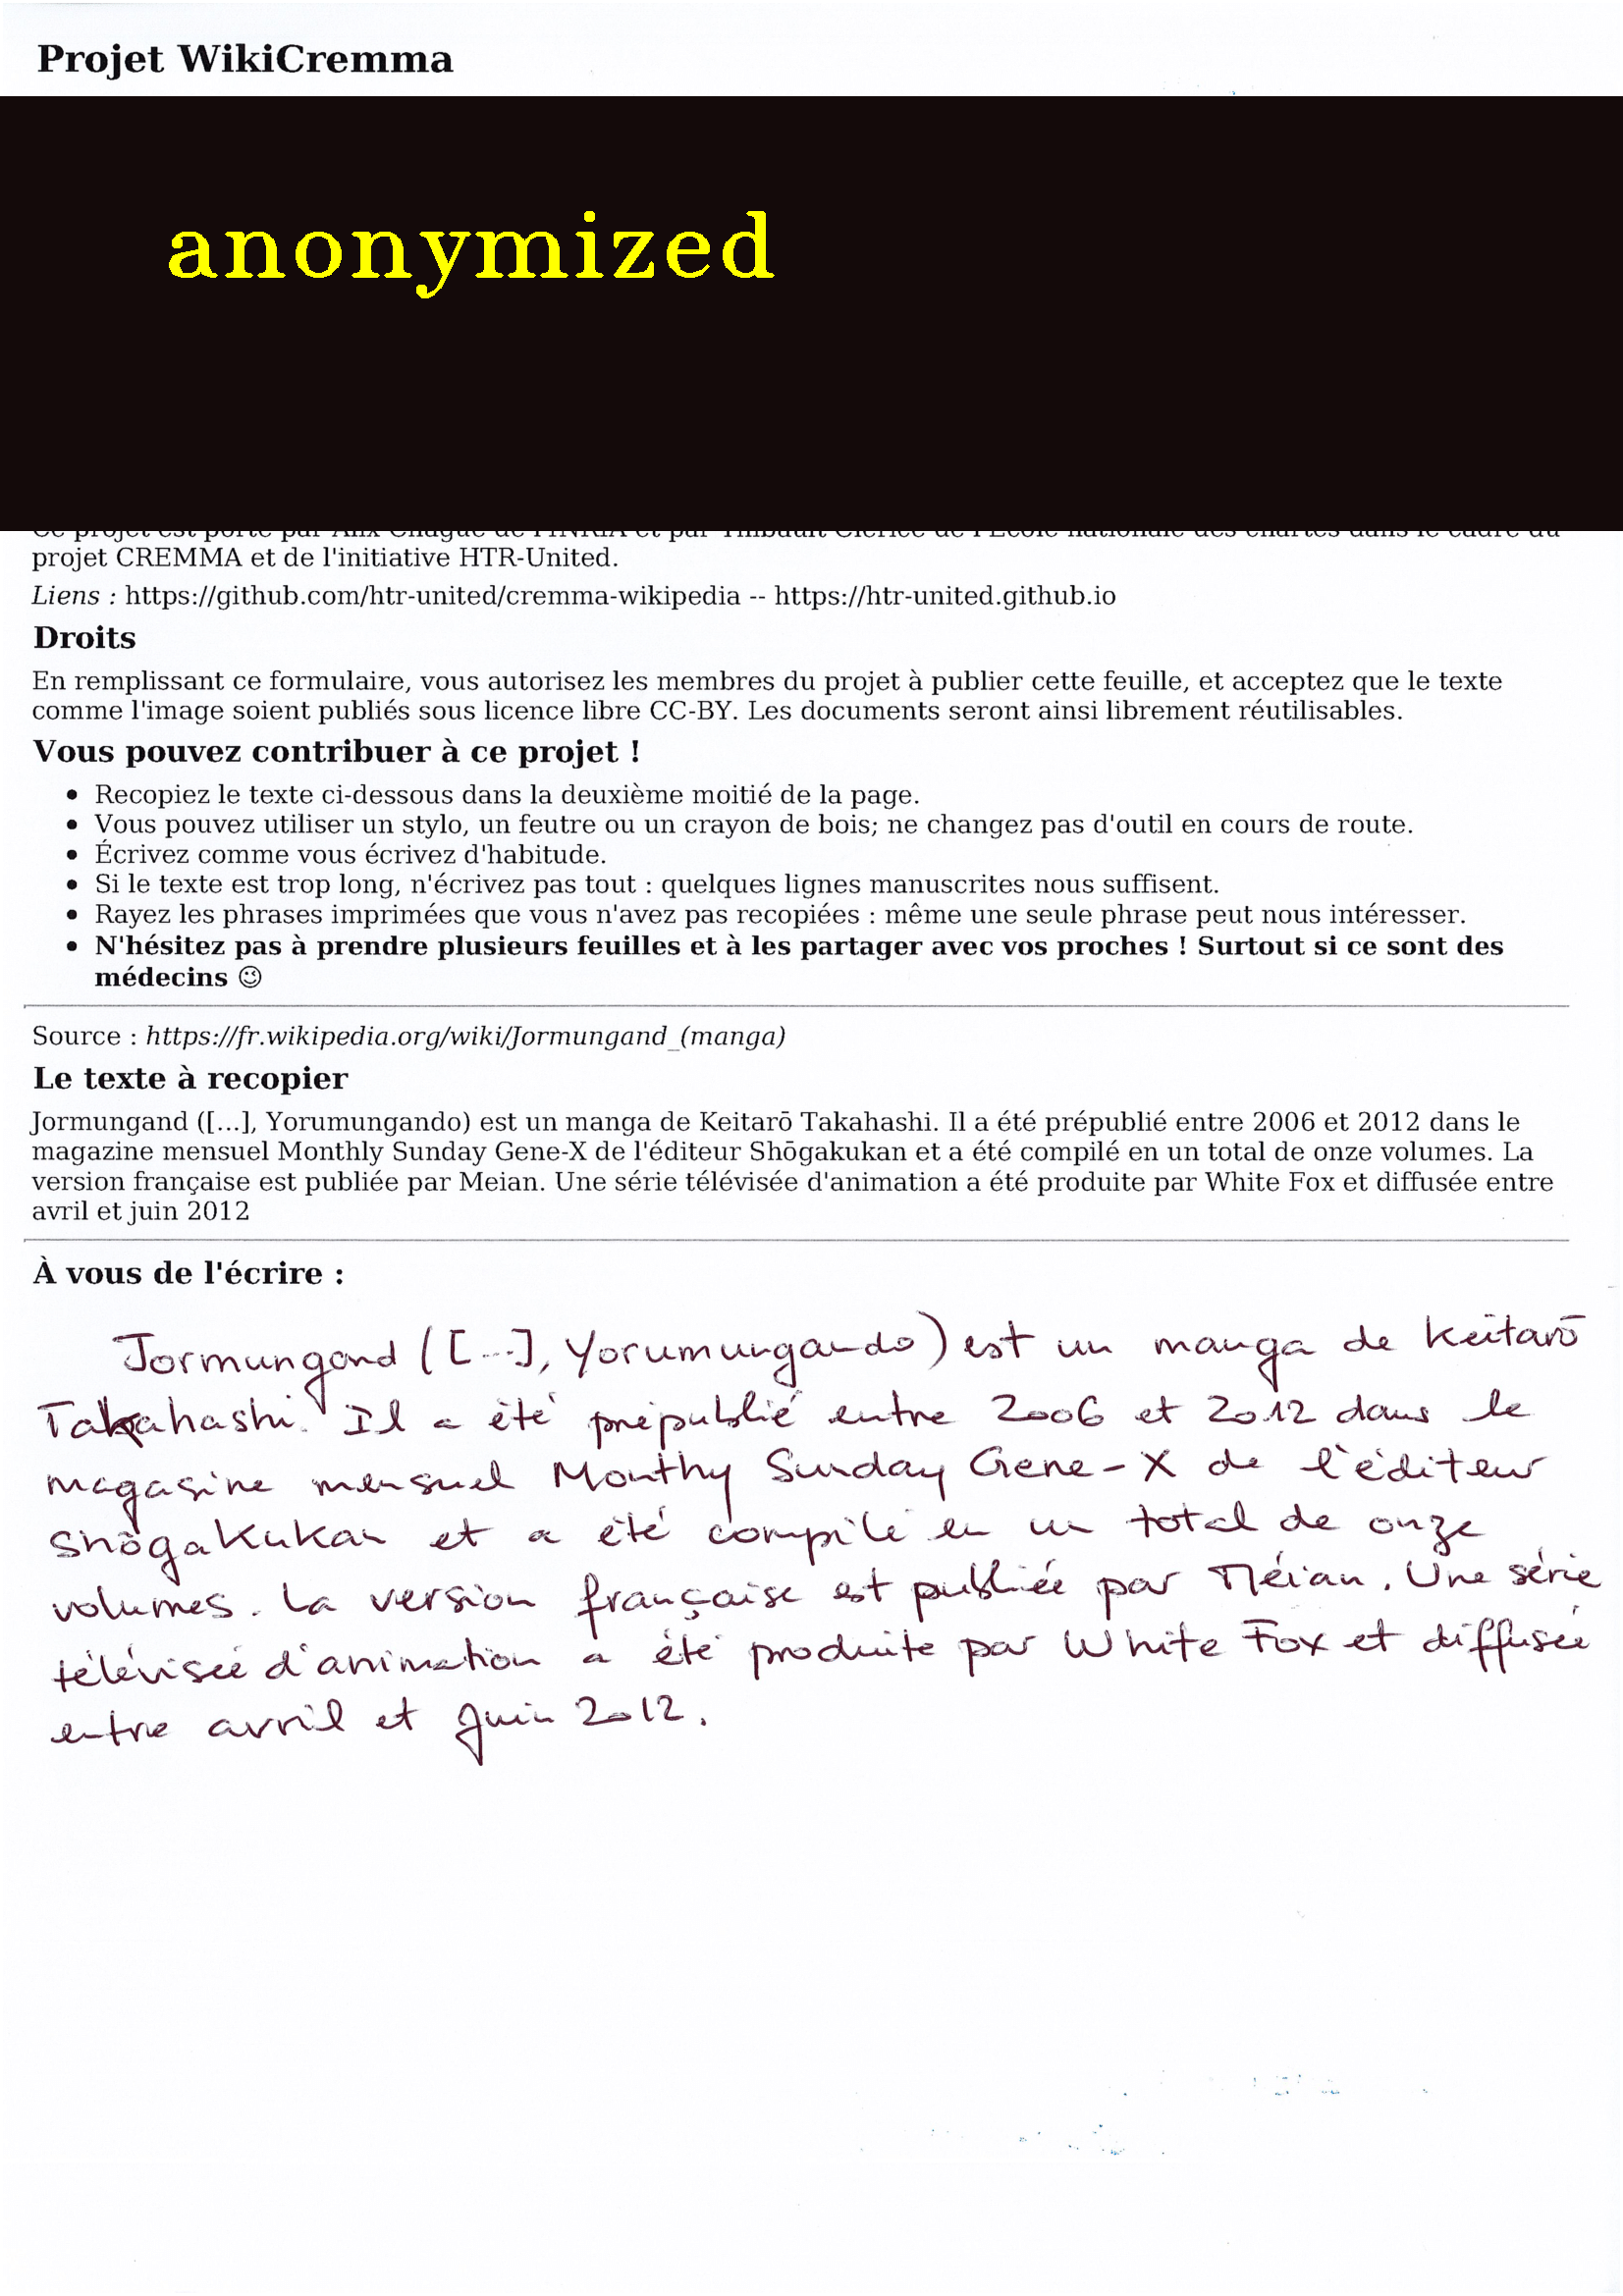 Projet WikiCremma
anonymized
Ce projet est porté par Alix Chagué de l'INRIA et par Thibault Clérice de l'École nationale des chartes dans le cadre du
projet CREMMA et de l'initiative HTR-United.
Liens : https://github.com/htr-united/cremma-wikipedia -- https://htr-united.github.io
Droits
En remplissant ce formulaire, vous autorisez les membres du projet à publier cette feuille, et acceptez que le texte
comme l'image soient publiés sous licence libre CC-BY. Les documents seront ainsi librement réutilisables.
Vous pouvez contribuer à ce projet !
• Recopiez le texte ci-dessous dans la deuxième moitié de la page.
• Vous pouvez utiliser un stylo, un feutre ou un crayon de bois; ne changez pas d'outil en cours de route.
• Écrivez comme vous écrivez d'habitude.
• Si le texte est trop long, n'écrivez pas tout : quelques lignes manuscrites nous suffisent.
• Rayez les phrases imprimées que vous n'avez pas recopiées : même une seule phrase peut nous intéresser.
• N'hésitez pas à prendre plusieurs feuilles et à les partager avec vos proches ! Surtout si ce sont des
médecins 😉
Source : https://fr.wikipedia.org/wiki/Jormungand_(manga)
Le texte à recopier
Jormungand ([...], Yorumungando) est un manga de Keitarō Takahashi. Il a été prépublié entre 2006 et 2012 dans le
magazine mensuel Monthly Sunday Gene-X de l'éditeur Shōgakukan et a été compilé en un total de onze volumes. La
version française est publiée par Meian. Une série télévisée d'animation a été produite par White Fox et diffusée entre
avril et juin 2012
À vous de l'écrire :
Jormungand ([...], Yorumungando) est un manga de Keitarō
Takahashi. Il a été prépublié entre 2006 et 2012 dans le
magasine mensuel Monthy Sunday Gene-X de l'éditeur
Shōgakukan et a été compilé en un total de onze
volumes. La version française est publiée par Méian. Une série
télévisée d'animation a été produite par White Fox et diffusée
entre avril et juin 2012.